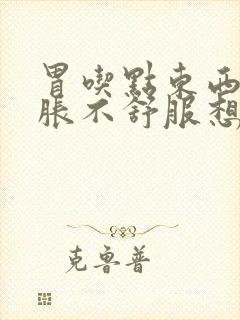 胃喫點東西
脹不舒服想
克魯普